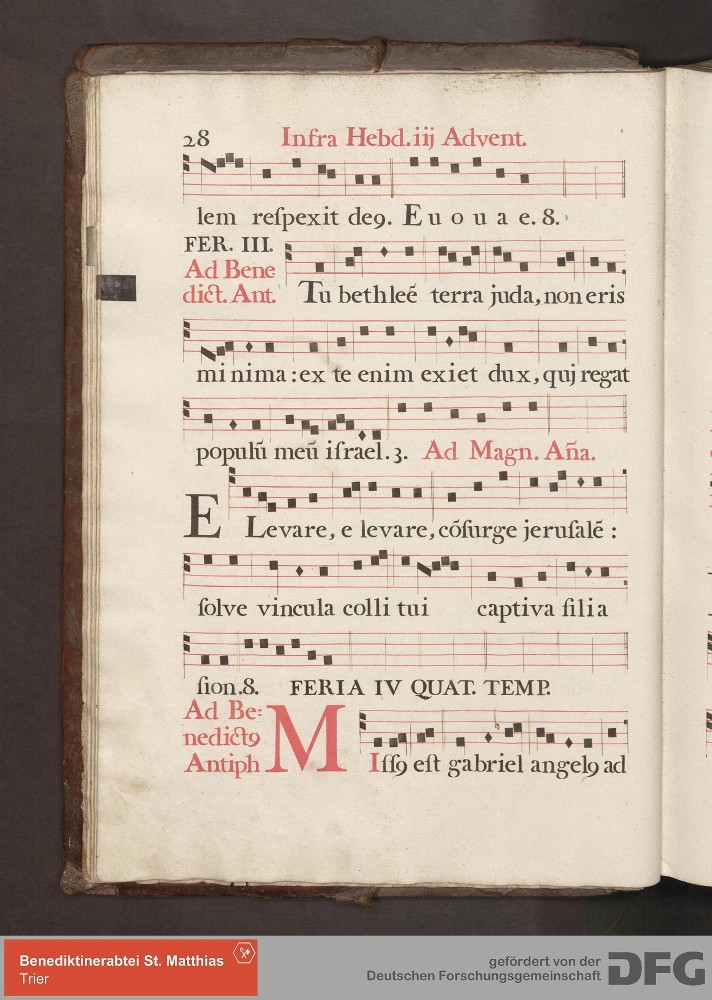 28 Infra Hebd. iij Advent.
lem reſpexit de9. E u o u a e. 8.
FER. III.
Ad Bene
dict. Ant. Tu bethleē terra juda, non eris
minima : ex te enim exiet dux, quj regat
populū meū iſrael. 3. Ad Magn. Aña.
E Levare, e levare, cōſurge jeruſalē :
ſolve vincula colli tui captiva filia
ſion. 8. FERIA IV QUAT. TEMP.
Ad Be:
nedict9
Antiph M Iſſ9 eſt gabriel angel9 ad
Benediktinerabtei St. Matthias
Trier
gefördert von der
Deutschen Forschungsgemeinschaft DFG